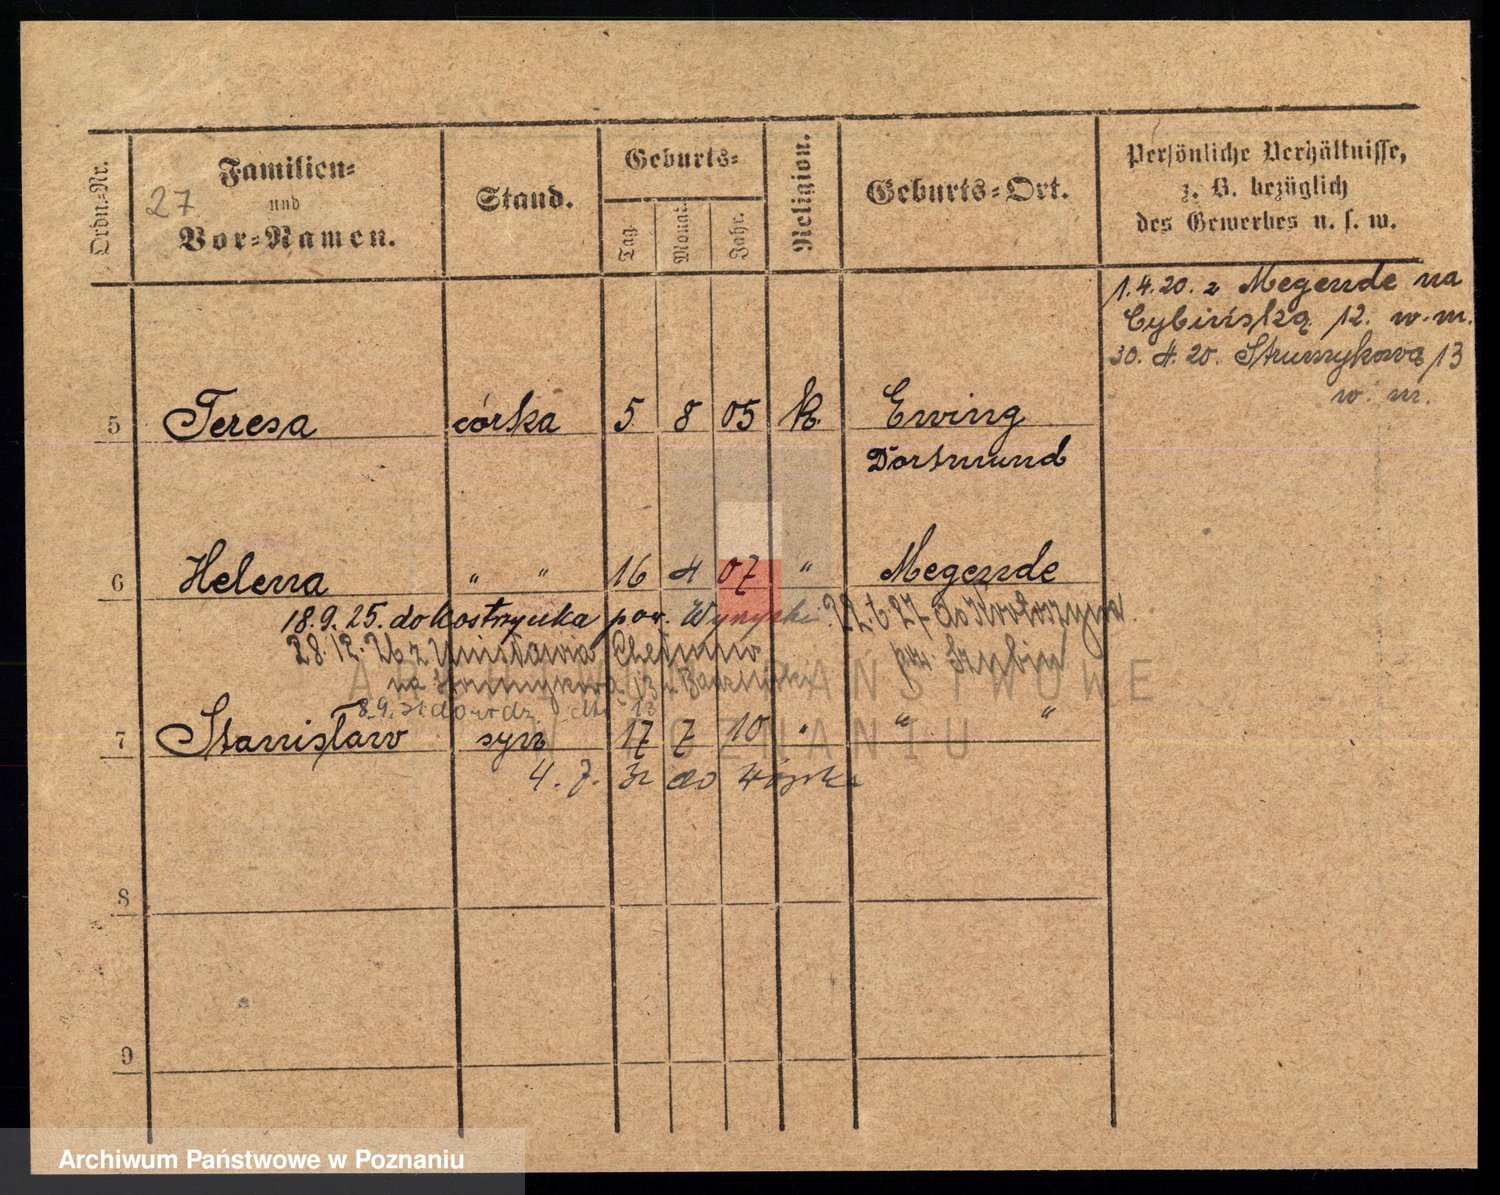 Ordn.-Nr.
Familien-
und
Vor-Namen.
27
Stand.
Geburts-
Tag.
Monat.
Jahr.
Religion.
Geburts-Ort.
Persönliche Verhältnisse,
z. B. bezüglich
des Gewerbes u. s. w.
1.4.20. z Megende na
Cybińską 12. w.m.
30. 4. 20. Strumykową 13
w. m.
5 Teresa córka 5 8 05 k. Ewing
Dortmund
6 Helena " " 16 4 07 " Megende
18.9.25. do Kostrzynka pow. Wyrzyski. 22.6.27 do
28.12.26 z Unisławia Chełmno pow. Szubin
na Strumykową 13
8.9.31 do 13
7 Stanisław syn 17 7 10 " " "
4. 7. 32 do Wojska
8
9
ARCHIWUM PAŃSTWOWE
W POZNANIU
Archiwum Państwowe w Poznaniu